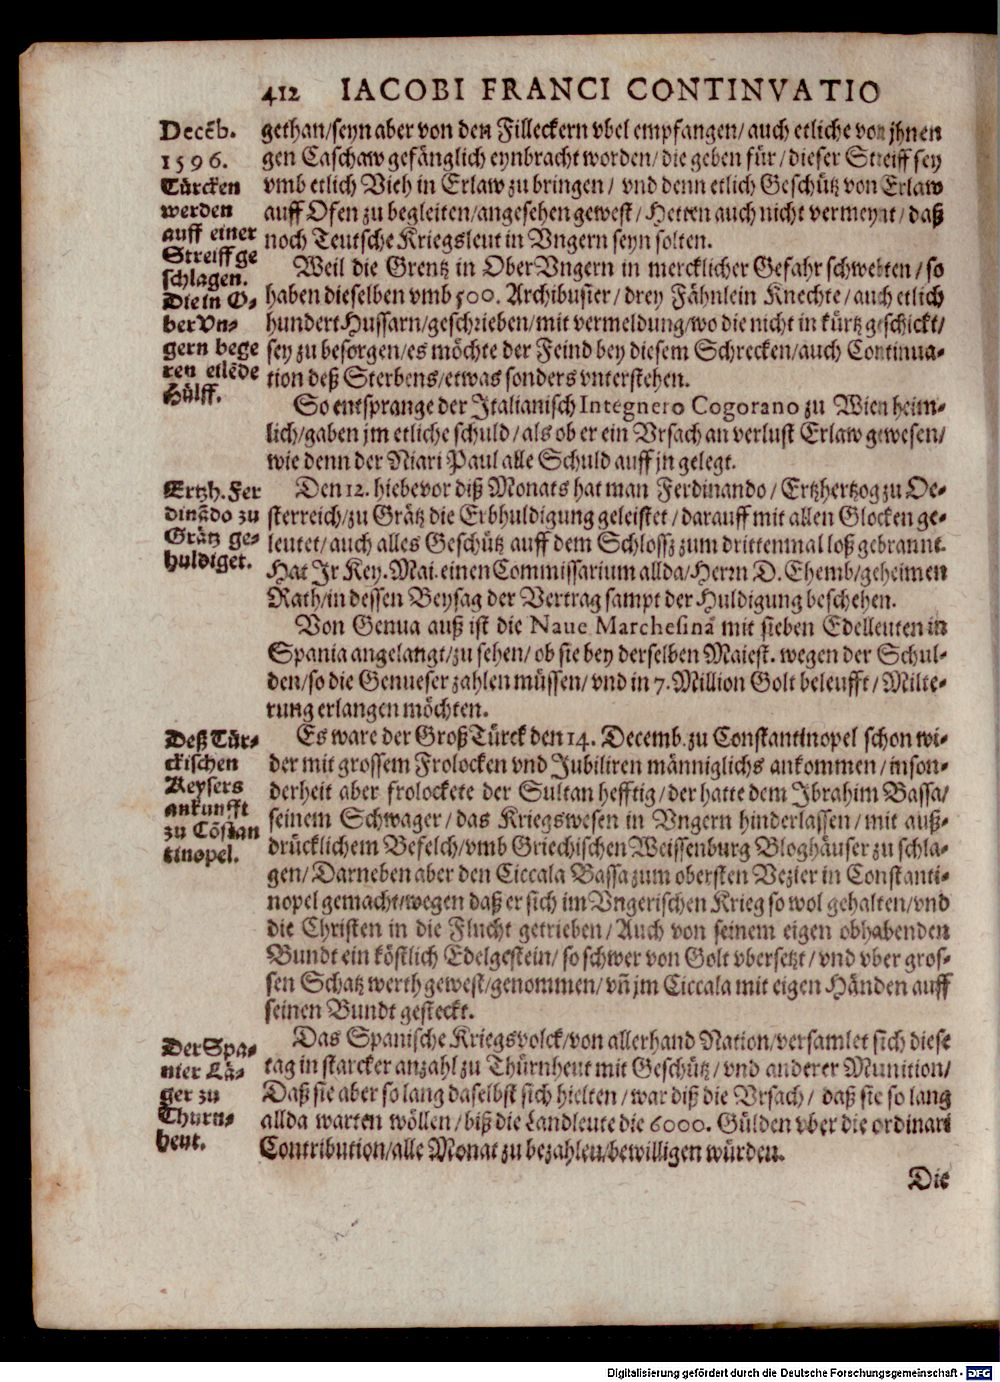 412 IACOBI FRANCI CONTINVATIO
Decẽb.
1596.
Türcken
werden
auff einer
Streiff ge
schlagen.
Die in O-
ber Vn-
gern bege
ren etlẽde
Hülff.
gethan/seyn aber von den Filleckern vbel empfangen/auch etliche von jhnen
gen Caschaw gefänglich eynbracht worden/die geben für/dieser Streiff sey
vmb etlich Vieh in Erlaw zu bringen/ vnd denn etlich Geschütz von Erlaw
auff Ofen zu begleiten/angesehen gewest/Hetten auch nicht vermeynt/daß
noch Teutsche Kriegsleut in Vngern seyn solten.
Weil die Grentz in Ober Vngern in mercklicher Gefahr schwebten/so
haben dieselben vmb 500. Archibusier/drey Fähnlein Knechte/auch etlich
hundert Hussarn/geschrieben/mit vermeldung/wo die nicht in kürtz geschickt/
sey zu besorgen/es möchte der Feind bey diesem Schrecken/auch Continua-
tion deß Sterbens/etwas sonders vnterstehen.
So entsprange der Italianisch Integnero Cogorano zu Wien heim-
lich/gaben jm etliche schuld/als ob er ein Vrsach an verlust Erlaw gewesen/
wie denn der Niari Paul alle Schuld auff jn gelegt.
Ertzh. Fer
dinãdo zu
Grätz ge-
huldiget.
Den 12. hiebevor diß Monats hat man Ferdinando/Ertzhertzog zu Oe-
sterreich/zu Grätz die Erbhuldigung geleistet/darauff mit allen Glocken ge-
leutet/auch alles Geschütz auff dem Schlossz zum drittenmal loß gebrannt.
Hat Jr Key. Mai. einen Commissarium allda/Herrn D. Ehemb/geheimen
Rath/in dessen Beysag der Vertrag sampt der Huldigung beschehen.
Von Genua auß ist die Naue Marchesinã mit sieben Edelleuten in
Spania angelangt/zu sehen/ob sie bey derselben Maiest. wegen der Schul-
den/so die Genueser zahlen müssen/vnd in 7. Million Golt beleufft/Milte-
rung erlangen möchten.
Deß Tür-
ckischen
Keysers
ankunfft
zu Cõstan
tinopel.
Es ware der Groß Türck den 14. Decemb. zu Constantinopel schon wi-
der mit grossem Frolocken vnd Jubiliren männiglichs ankommen/inson-
derheit aber frolockete der Sultan hefftig/der hatte dem Jbrahim Bassa/
seinem Schwager/das Kriegswesen in Vngern hinderlassen/mit auß-
drücklichem Befelch/vmb Griechischen Weissenburg Bloghäuser zu schla-
gen/Darneben aber den Ciccala Bassa zum obersten Vezier in Constanti-
nopel gemacht/wegen daß er sich im Vngerischen Krieg so wol gehalten/vnd
die Christen in die Flucht getrieben/Auch von seinem eigen obhabenden
Bundt ein köstlich Edelgestein/so schwer von Golt vbersetzt/vnd vber gros-
sen Schatz werth gewest/genommen/vñ jm Ciccala mit eigen Händen auff
seinen Bundt gesteckt.
Der Spa-
nier Lä-
ger zu
Thurn-
heut.
Das Spanische Kriegsvolck/von allerhand Nation/versamlet sich diese
tag in starcker anzahl zu Thürnheut mit Geschütz/vnd anderer Munition/
Daß sie aber so lang daselbst sich hielten/war diß die Vrsach/ daß sie so lang
allda warten wöllen/biß die Landleute die 6000. Gülden vber die ordinari
Contribution/alle Monat zu bezahlen/bewilligen würden.
Die
Digitalisierung gefördert durch die Deutsche Forschungsgemeinschaft - DFG